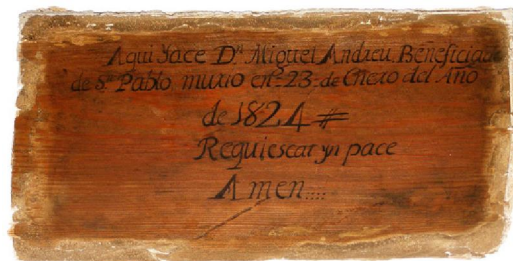 Aqui Yace Dn. Miguel Andreu Beneficiado
de Sn. Pablo murio en 23 de Enero del Año
de 1824 #
Requiescat yn pace
Amen....